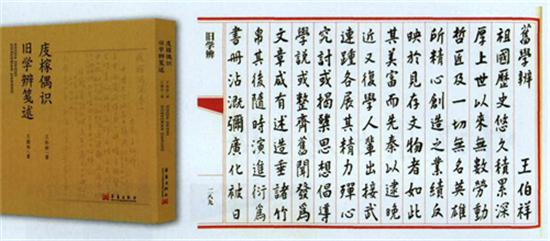 庋榢偶识
旧学辨笺述
舊學辨
王伯祥
祖國歷史悠久積累深
厚上世以來無數勞動
哲匠及一切無名英雄
所精心創造之業績反
映於見存文物者如此
其美富而先秦以逮晚
近又復學人輩出接武
連踵各展其精力殫心
究討或揭櫫思想倡導
學說或整齊舊聞發爲
文章咸有述造垂諸竹
帛其後隨時演進衍爲
書冊沾溉彌廣化被日
旧学辨
一八九